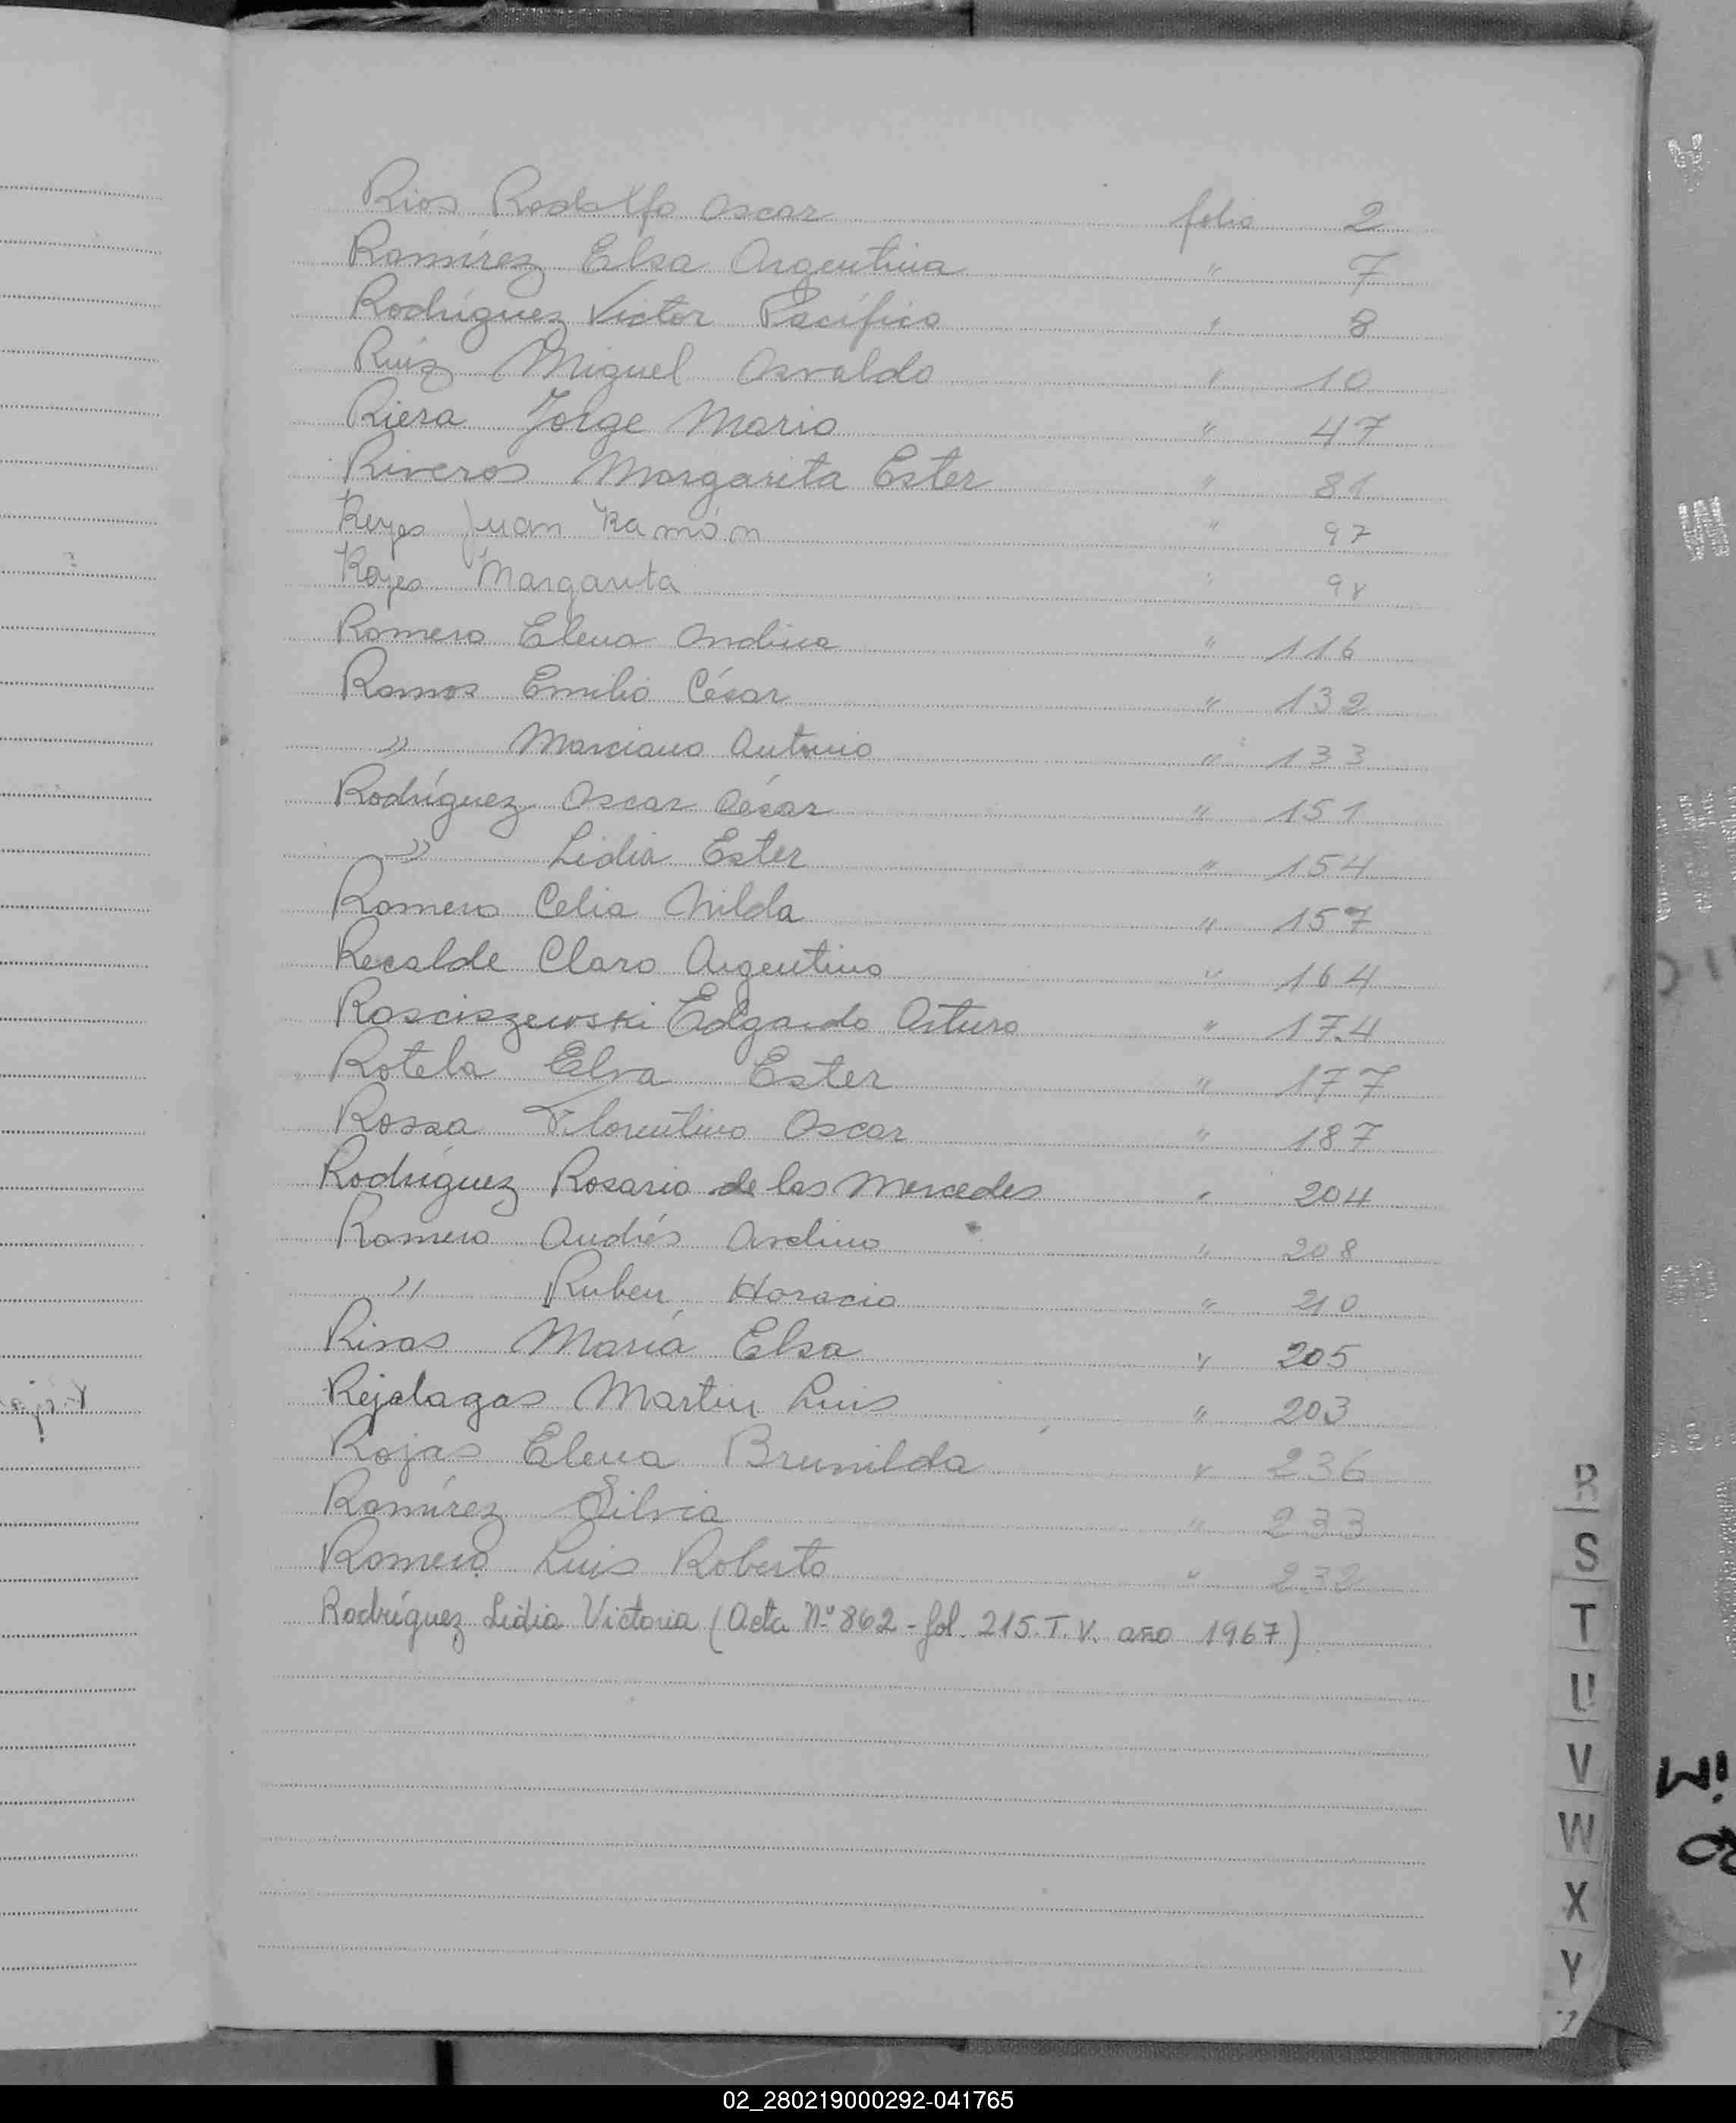 Rios Rodolfo Oscar folio 2
Ramírez Elsa Argentina " 7
Rodríguez Victor Pacífico " 8
Ruiz Miguel Osvaldo " 10
Riera Jorge Mario " 47
Riveros Margarita Ester " 81
Reyes Juan Ramón " 97
Reyes Margarita " 98
Romero Elena Andina " 116
Ramos Emilio César " 132
" Marciano Antonio " 133
Rodríguez Oscar César " 151
" Lidia Ester " 154
Romero Celia Nilda " 157
Recalde Claro Argentino " 164
Rasciszewski Edgardo Arturo " 174
Rotela Elva Ester " 177
Rossa Florentino Oscar " 187
Rodríguez Rosario de las Mercedes " 204
Romero Andrés Avelino " 208
" Ruben Horacio " 210
Rivas María Elsa " 205
Rejalagas Martin Luis " 203
Rojas Elena Brunilda " 236
Ramírez Silvia " 233
Romero Luis Roberto " 232
Rodríguez Lidia Victoria (Acta Nº 862 - fol. 215. T. V. año 1967)
R
S
T
U
V
W
X
Y
02_280219000292-041765